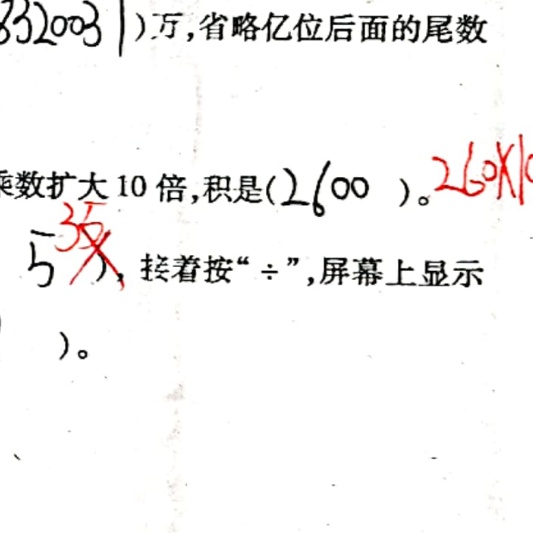 832003)万,省略亿位后面的尾数
乘数扩大 10 倍,积是(2600 )。260×10
5 35 ), 接着按“÷”,屏幕上显示
)。